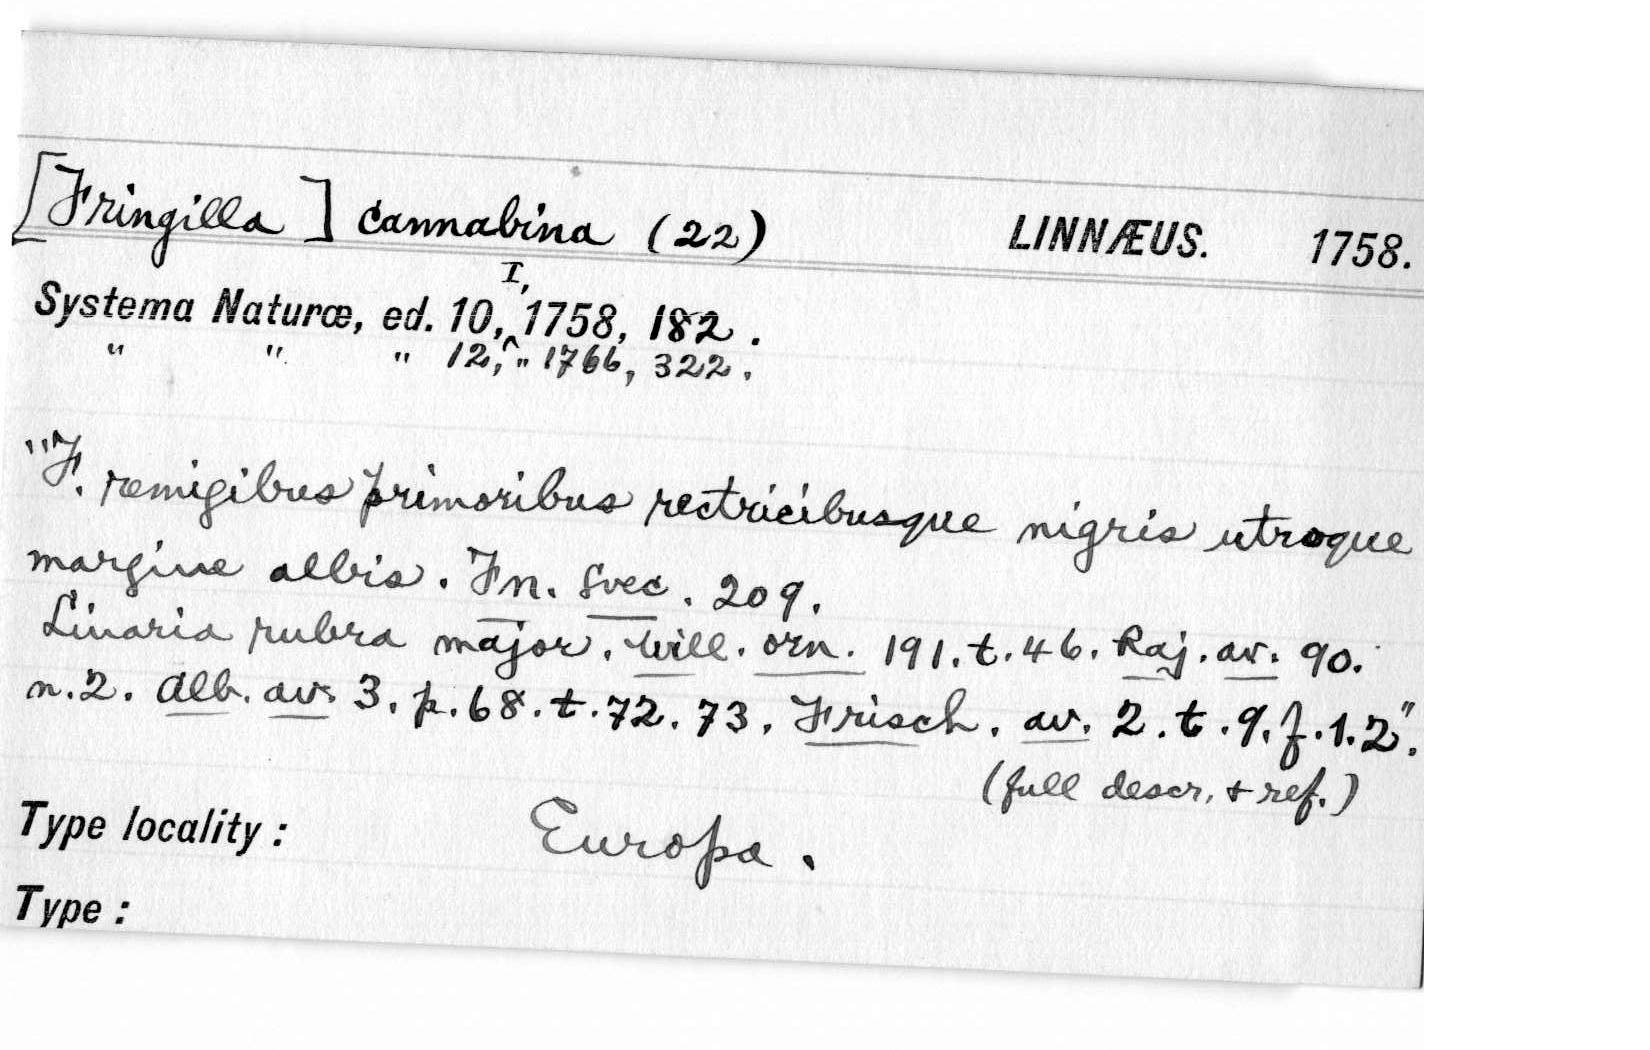 [Fringilla] cannabina (22) LINNÆUS. 1758.
Systema Naturæ, ed. 10, I, 1758, 182.
" " " 12, " 1766, 322.
"F. remigibus primoribus rectricibusque nigris utroque
margine albis. Fn. Svec. 209.
Linaria rubra major. Will. orn. 191. t. 46. Raj. av. 90.
n. 2. Alb. av. 3. p. 68. t. 72. 73. Frisch. av. 2. t. 9. f. 1. 2".
(full descr. + ref.)
Type locality: Europa.
Type: